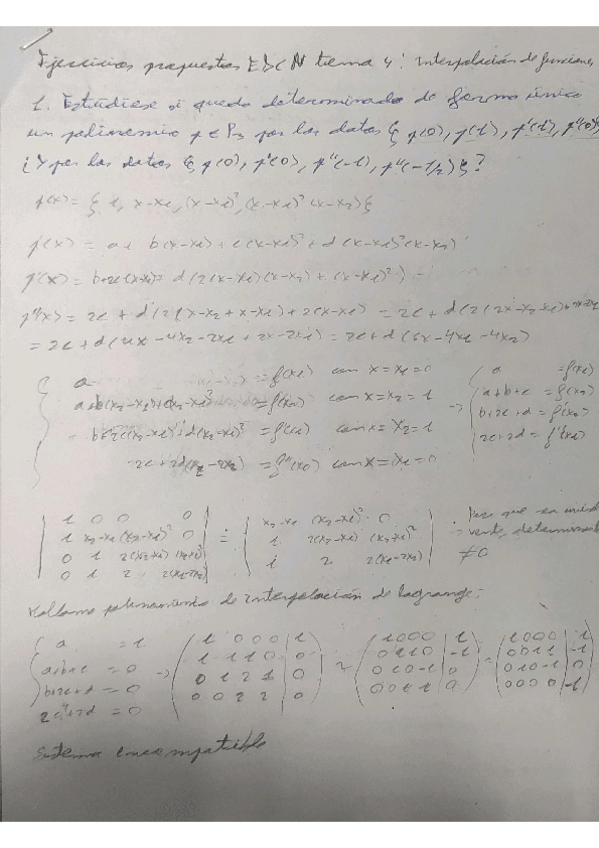 Ejercicios propuestos EDCN tema 4: Interpolación de funciones
1. Estúdiese si queda determinado de forma única
un polinomio p ∈ P₃ por los datos { p(0), p(1), p'(1), p''(0)},
¿Y por los datos { p(0), p'(0), p''(-1), p''(-1/2)}?
p(x) = { 1, x-x₁, (x-x₁)², (x-x₁)²(x-x₂)}
p(x) = a + b(x-x₁) + c(x-x₁)² + d(x-x₁)²(x-x₂)
p'(x) = b+2c(x-x₁)+ d(2(x-x₁)(x-x₂) + (x-x₁)²)
p''(x) = 2c + d(2(x-x₂ + x-x₁) + 2(x-x₁) = 2c + d(2(2x-x₂-x₁)
= 2c + d(4x -4x₂ -2x₁ + 2x -2x₁) = 2c + d(6x -4x₁ -4x₂)
a = f(x₁) con x = x₁ = 0
a = f(x₁)
= f(x₂) con x = x₂ = 1
a+b+c = f(x₂)
b+2c(x₂-x₁)+d(x₂-x₁)² = f'(x₂) con x = x₂ = 1
b+2c+d = f'(x₂)
= f''(x₁) con x = x₁ = 0
2c+2d = f''(x₁)
1 0 0 0
1 x₂-x₁ (x₂-x₁)² 0
0 1 2(x₂-x₁) (x₂-x₁)²
=
x₂-x₁ (x₂-x₁)² 0
1 2(x₂-x₁) (x₂-x₁)²
Para que sea
determinante
≠0
polinomio de interpolación de Lagrange:
a = 1
a+b+c = 0
b+2c+d = 0
2c+2d = 0
→
1 0 0 0 | 1
1 1 1 0 | 0
0 1 2 1 | 0
0 0 2 2 | 0
~
1 0 0 0 | 1
0 1 1 0 | -1
0 1 0 -1 | 0
0 0 1 1 | 0
~
1 0 0 0 | 1
0 0 1 1 | -1
0 1 0 -1 | 0
0 0 0 0 | -1
Sistema incompatible